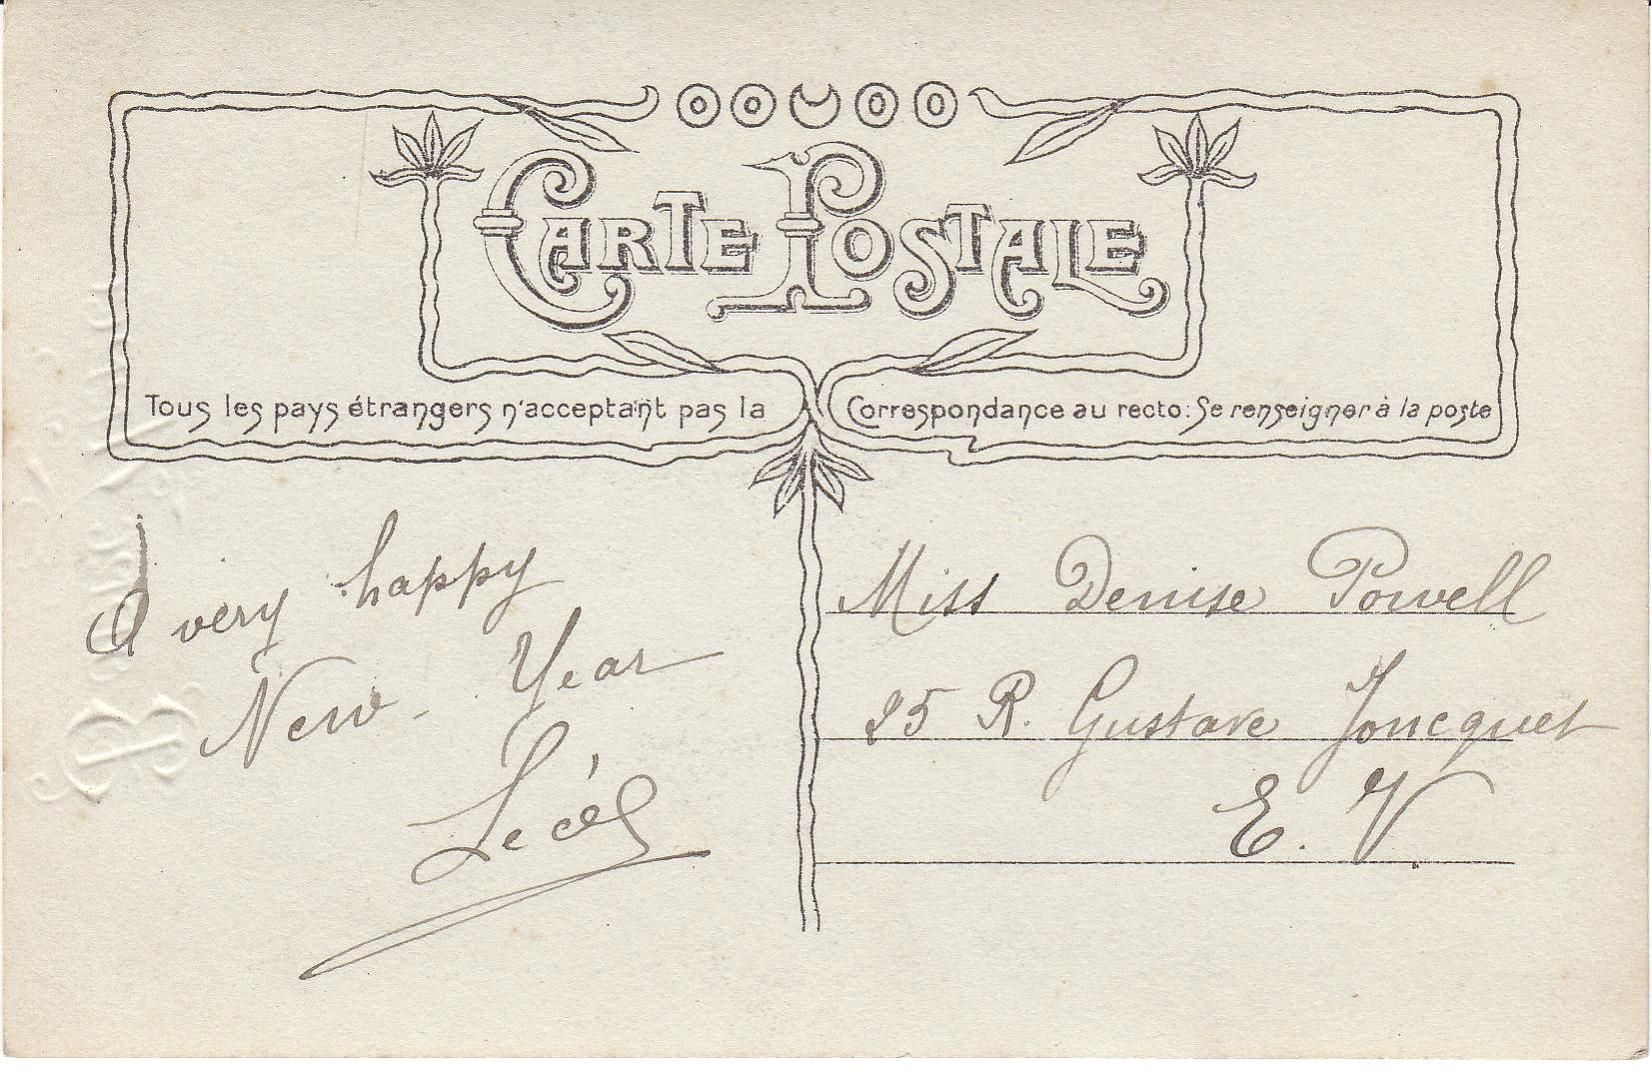 CARTE POSTALE
Tous les pays étrangers n'acceptant pas la Correspondance au recto: Se renseigner à la poste
A very happy
New Year
Miss Denise Powell
25 R. Gustave Joncquet
E. V